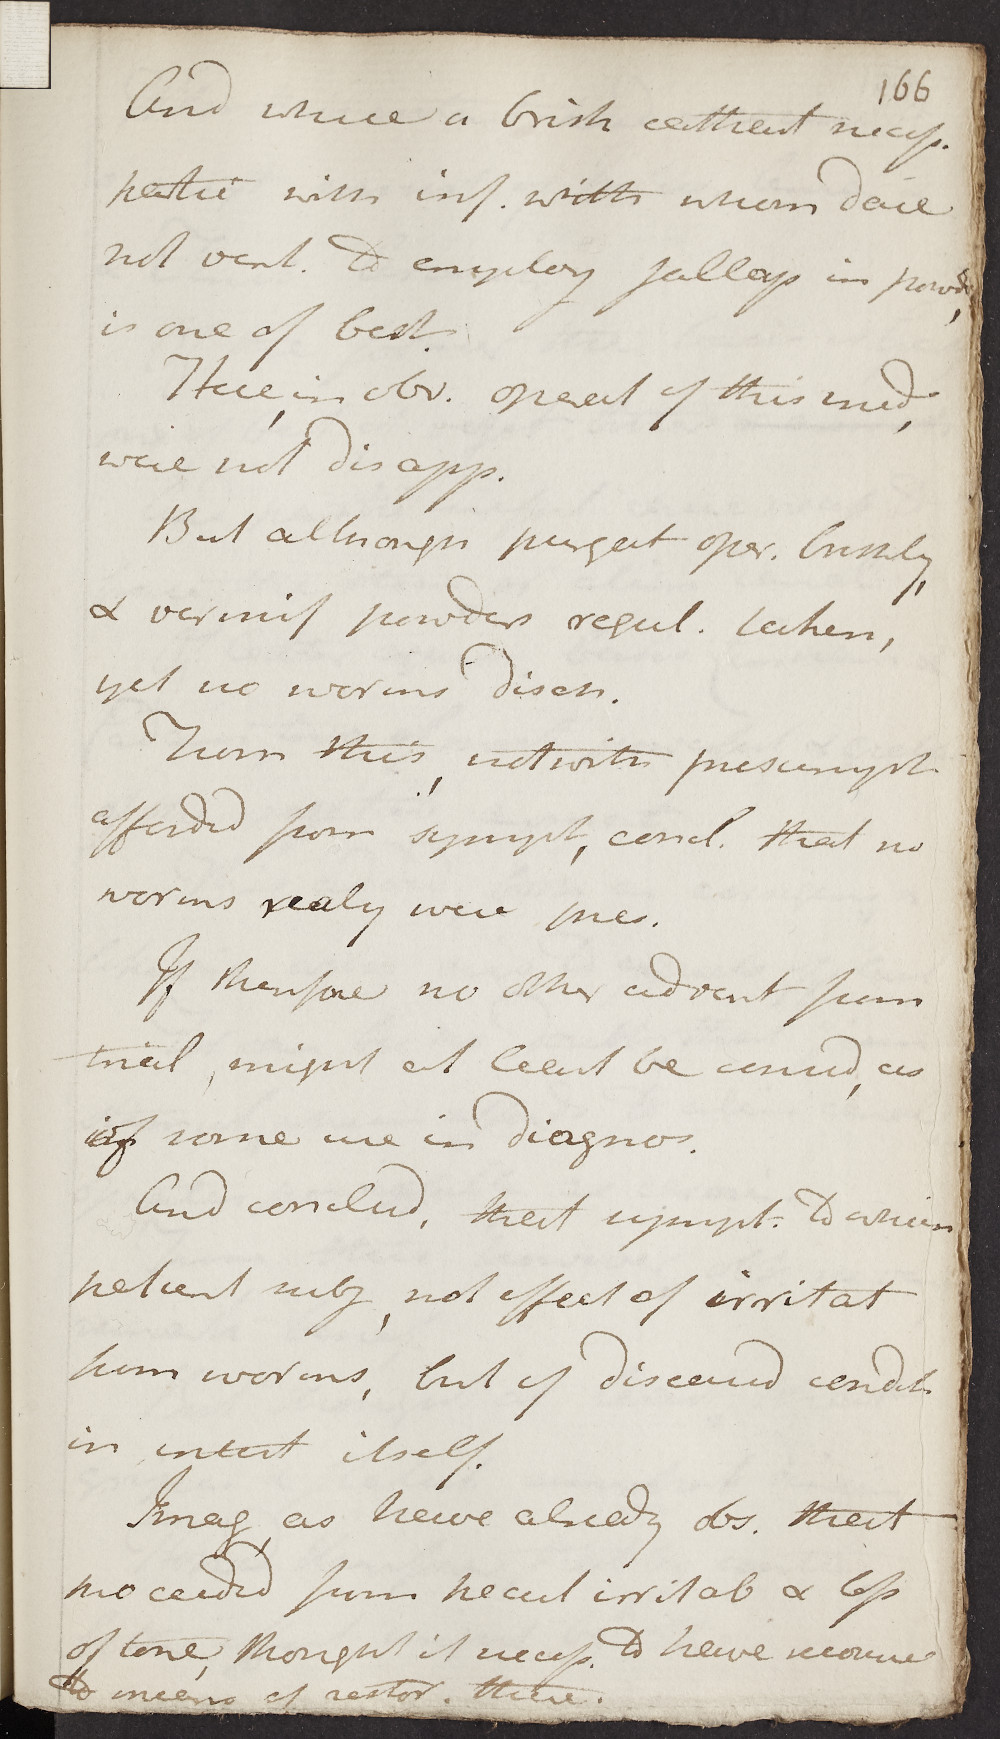 166
And where a brisk cathart necess.
partic with inf. with whom dare
not vent. to employ jallap in powd,
is one of best.
Here, in obv. operat of this med,
were not disapp.
But although purgat oper. briskly,
& vermif powders regul. taken,
yet no worms disch.
From this, notwith presumpt
afforded from sympt, concl. that no
worms realy were pres.
If therefore no other advant from
trial, might at least be consid, as
of some use in diagnos.
And conclud, that sympt. to which
patient subj, not effect of irritat
from worms, but of diseased condit
in intest itself.
Imag, as have already obs. that
proceeded from pecul irritab & loss
of tone, thought it necess. to have recourse
to means of restor. these.